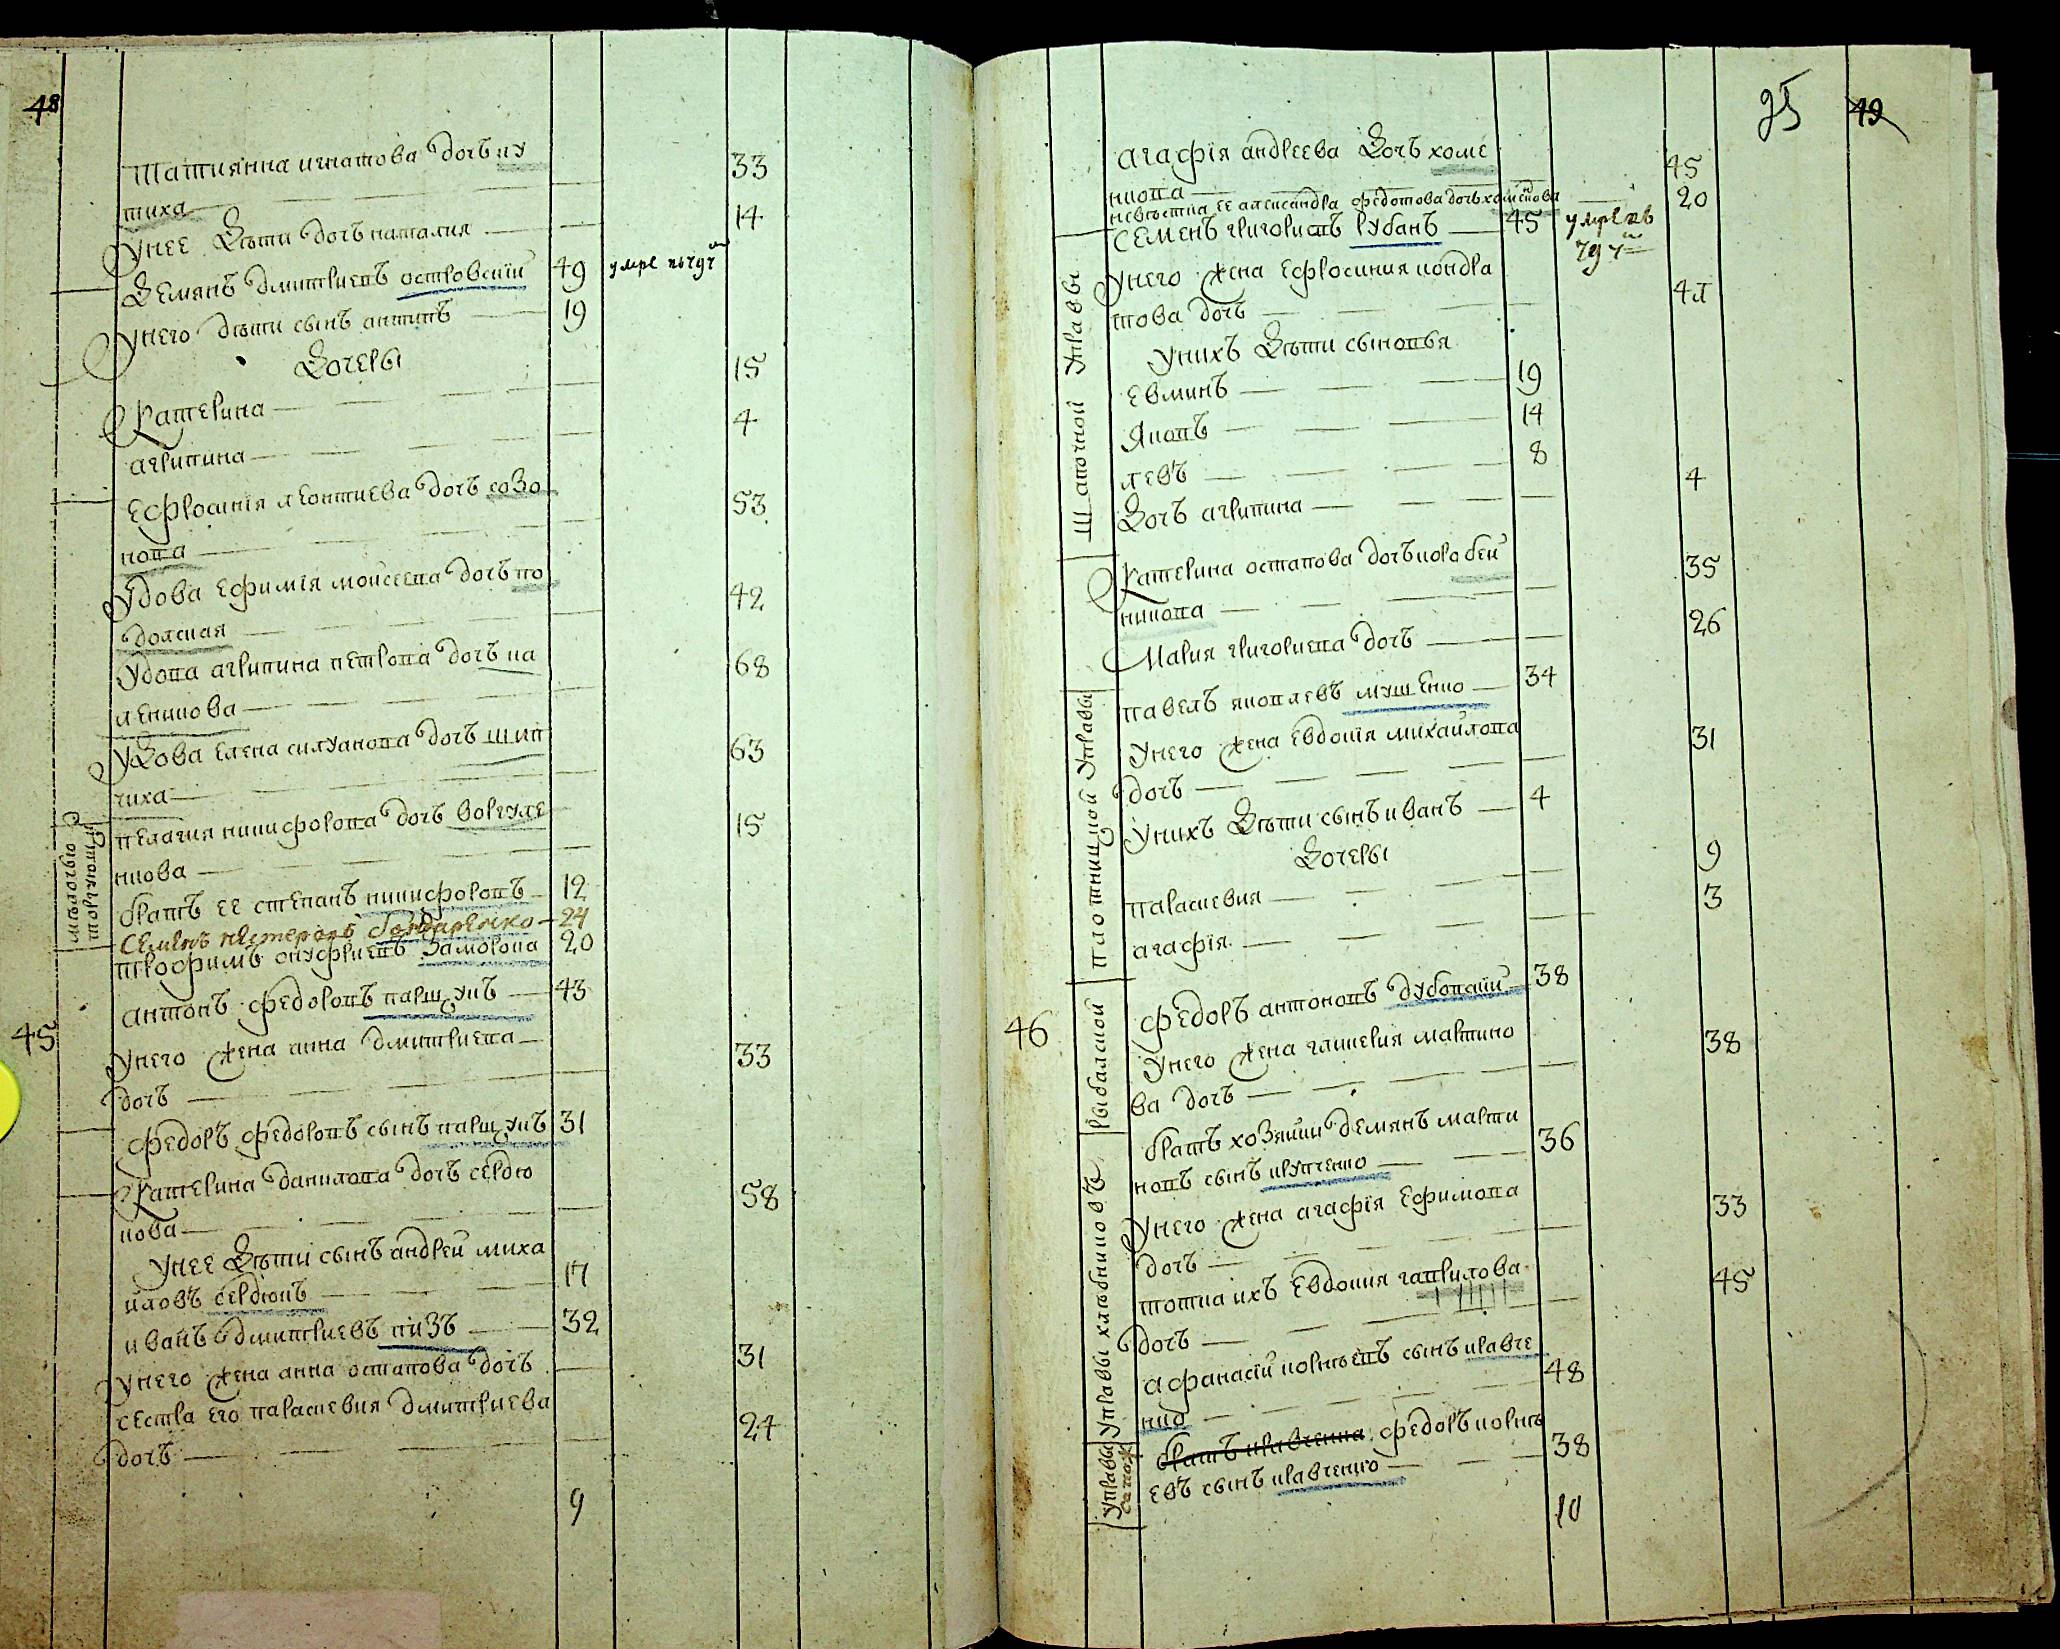 48
Татиянна игнатова дочь ку
тиха 33
У нее дѣти дочь наталия 14
Демянъ дмитриевъ островский 49 умре
У него дѣти сынъ антипъ 19
Дочеры
Катерина 15
агрипина 4
Ефросинія леонтиева дочь созо
нова 53
Удова Ефимія моисеева дочь по
долская 42
Удова агрипина петрова дочь ка
леникова 68
Удова Елена силуанова дочь шип
чиха 63
мѣлочью торгуютъ
пелагия никифорова дочь воргуле
нкова 15
братъ ее степанъ никифоровъ 12
Семенъ нестеровъ бондаренко 24
трофимъ онуфриевъ Заморока 20
45
антонъ федоровъ паршукъ 43
У него жена анна дмитриева
дочь 33
федоръ федоровъ сынъ паршукъ 31
Катерина данилова дочь сердю
кова 58
У нее дѣти сынъ андрей миха
йловъ сердюкъ 17
иванъ дмитриевъ пизъ 32
У него жена анна остапова дочь 31
сестра его параскевия дмитриева
дочь 24
9
95 49
агафія андреева дочь хоме
нкова 45
невѣстка ее александра федотова дочь хоменкова 20
Шапочной управы
семенъ григориевъ рубанъ 45 умре въ
794
У него жена Ефросиния кондра
това дочь 41
У нихъ дѣти сыновья
Евминъ 19
Яковъ 14
левъ 8
Дочь агрипина 4
Катерина остапова дочь коробей
никова 35
Мария григориева дочь 26
плотницкой управы
павелъ яковлевъ мушенко 34
У него жена Евдокія михайлова
дочь 31
У нихъ дѣти сынъ иванъ 4
Дочеры
параскевия 9
агафія 3
46
рыбалской
федоръ антоновъ дубовский 38
У него жена гликерия мартино
ва дочь 38
управы хлѣбниковъ
братъ хозяйки демянъ марти
новъ сынъ крупченко 36
У него жена агафія Ефимова
дочь 33
тотка ихъ Евдокия гаврилова
дочь 45
афанасий корнѣевъ сынъ кравче
нко 48
управы сапож
братъ кравченка федоръ корнѣ
евъ сынъ кравченко 38
10